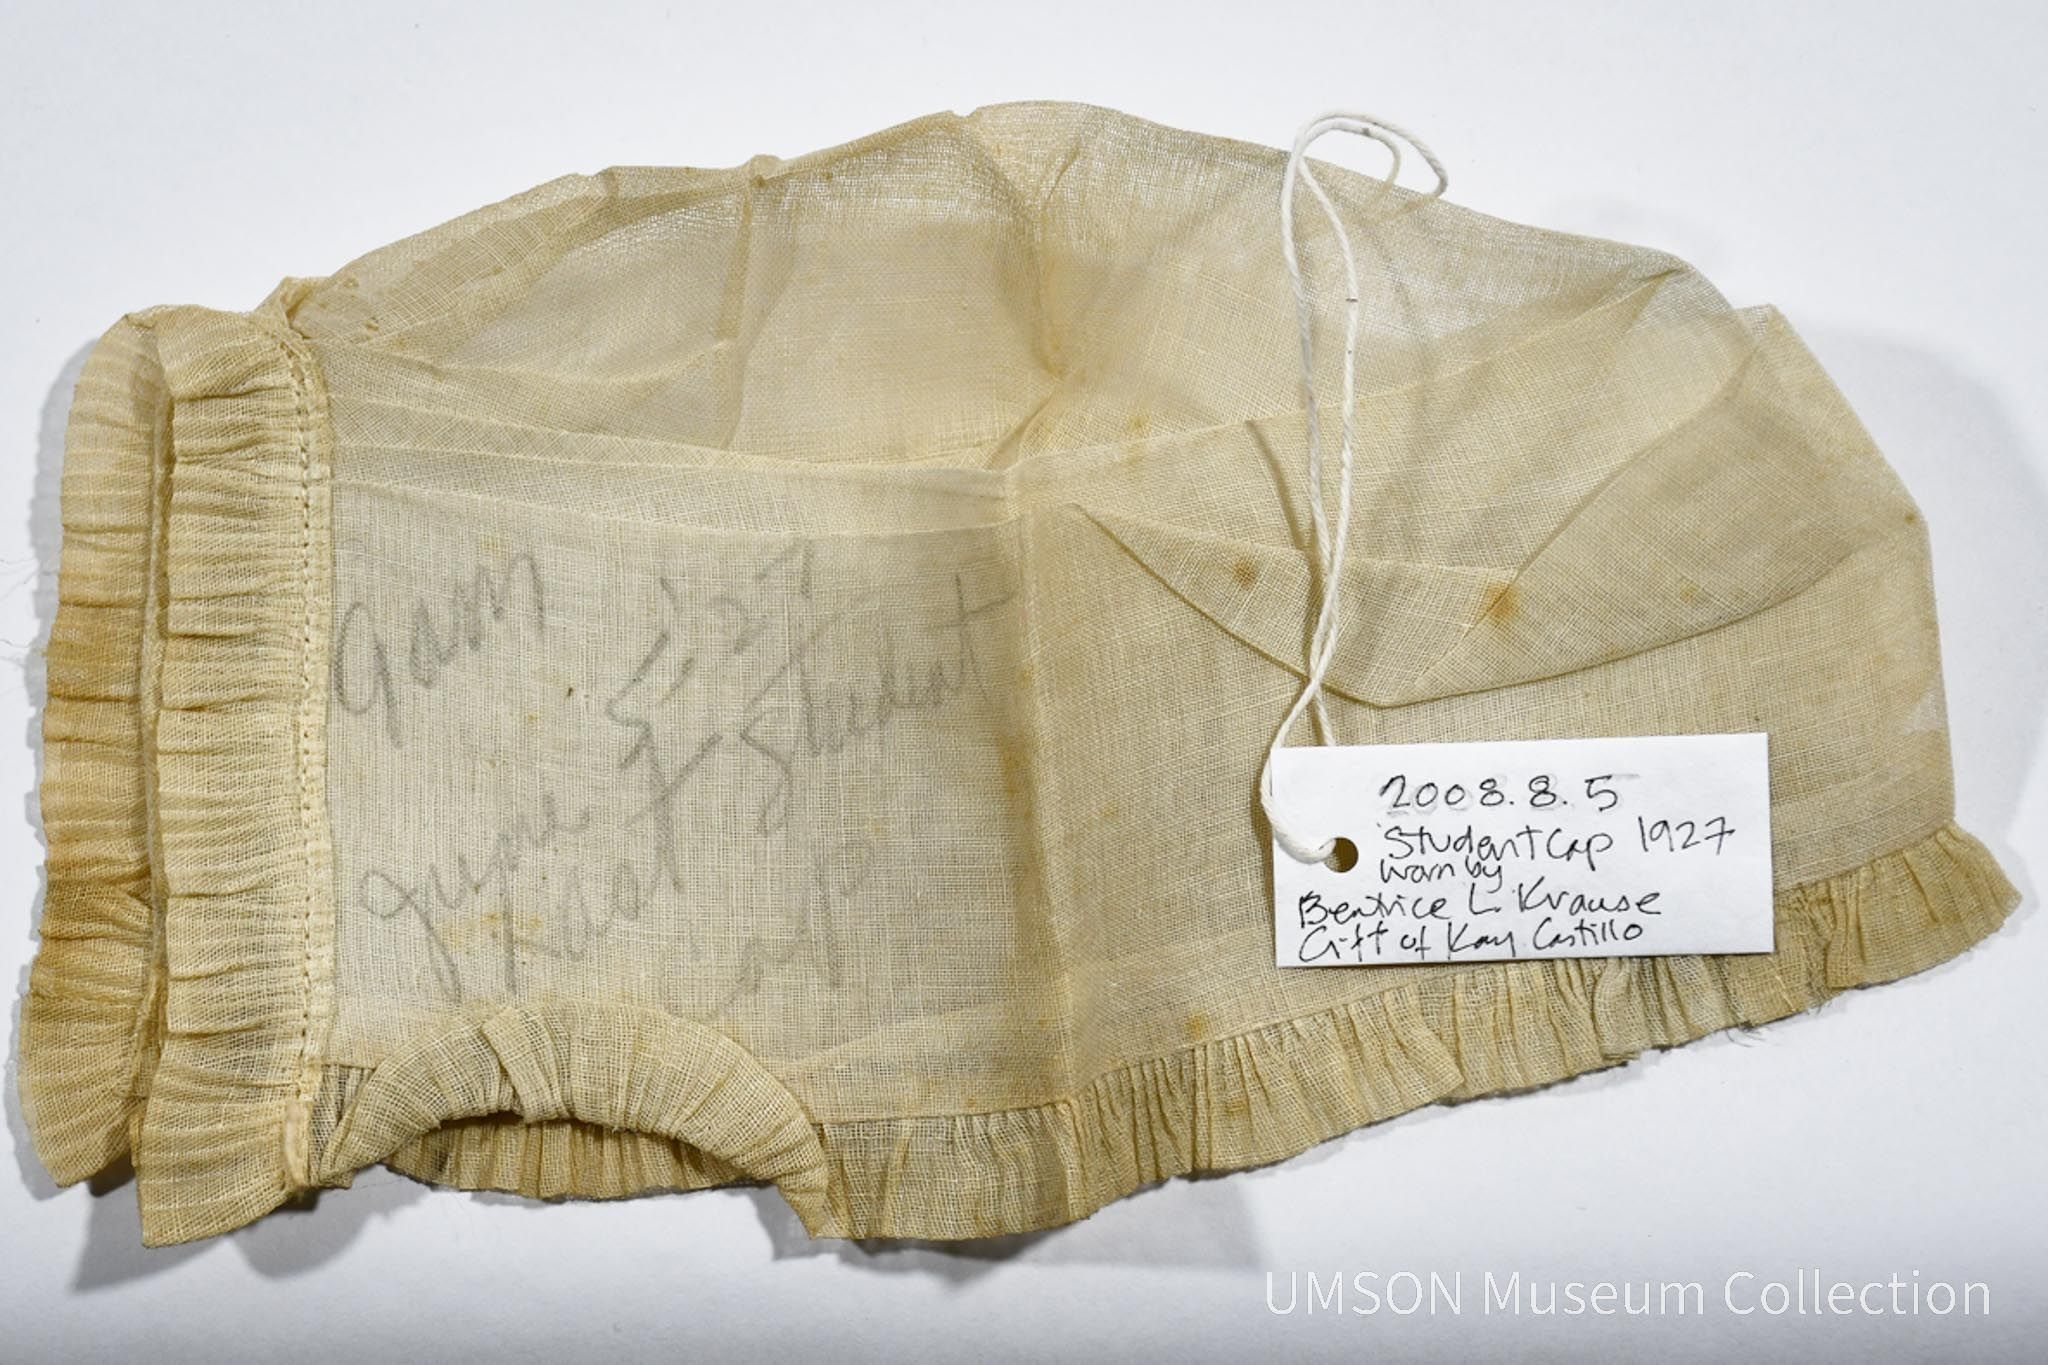 9am
June 5, '27
Last Student
Cap
2008.8.5
Student Cap 1927
worn by
Beatrice L. Krause
Gift of Kay Castillo
UMSON Museum Collection